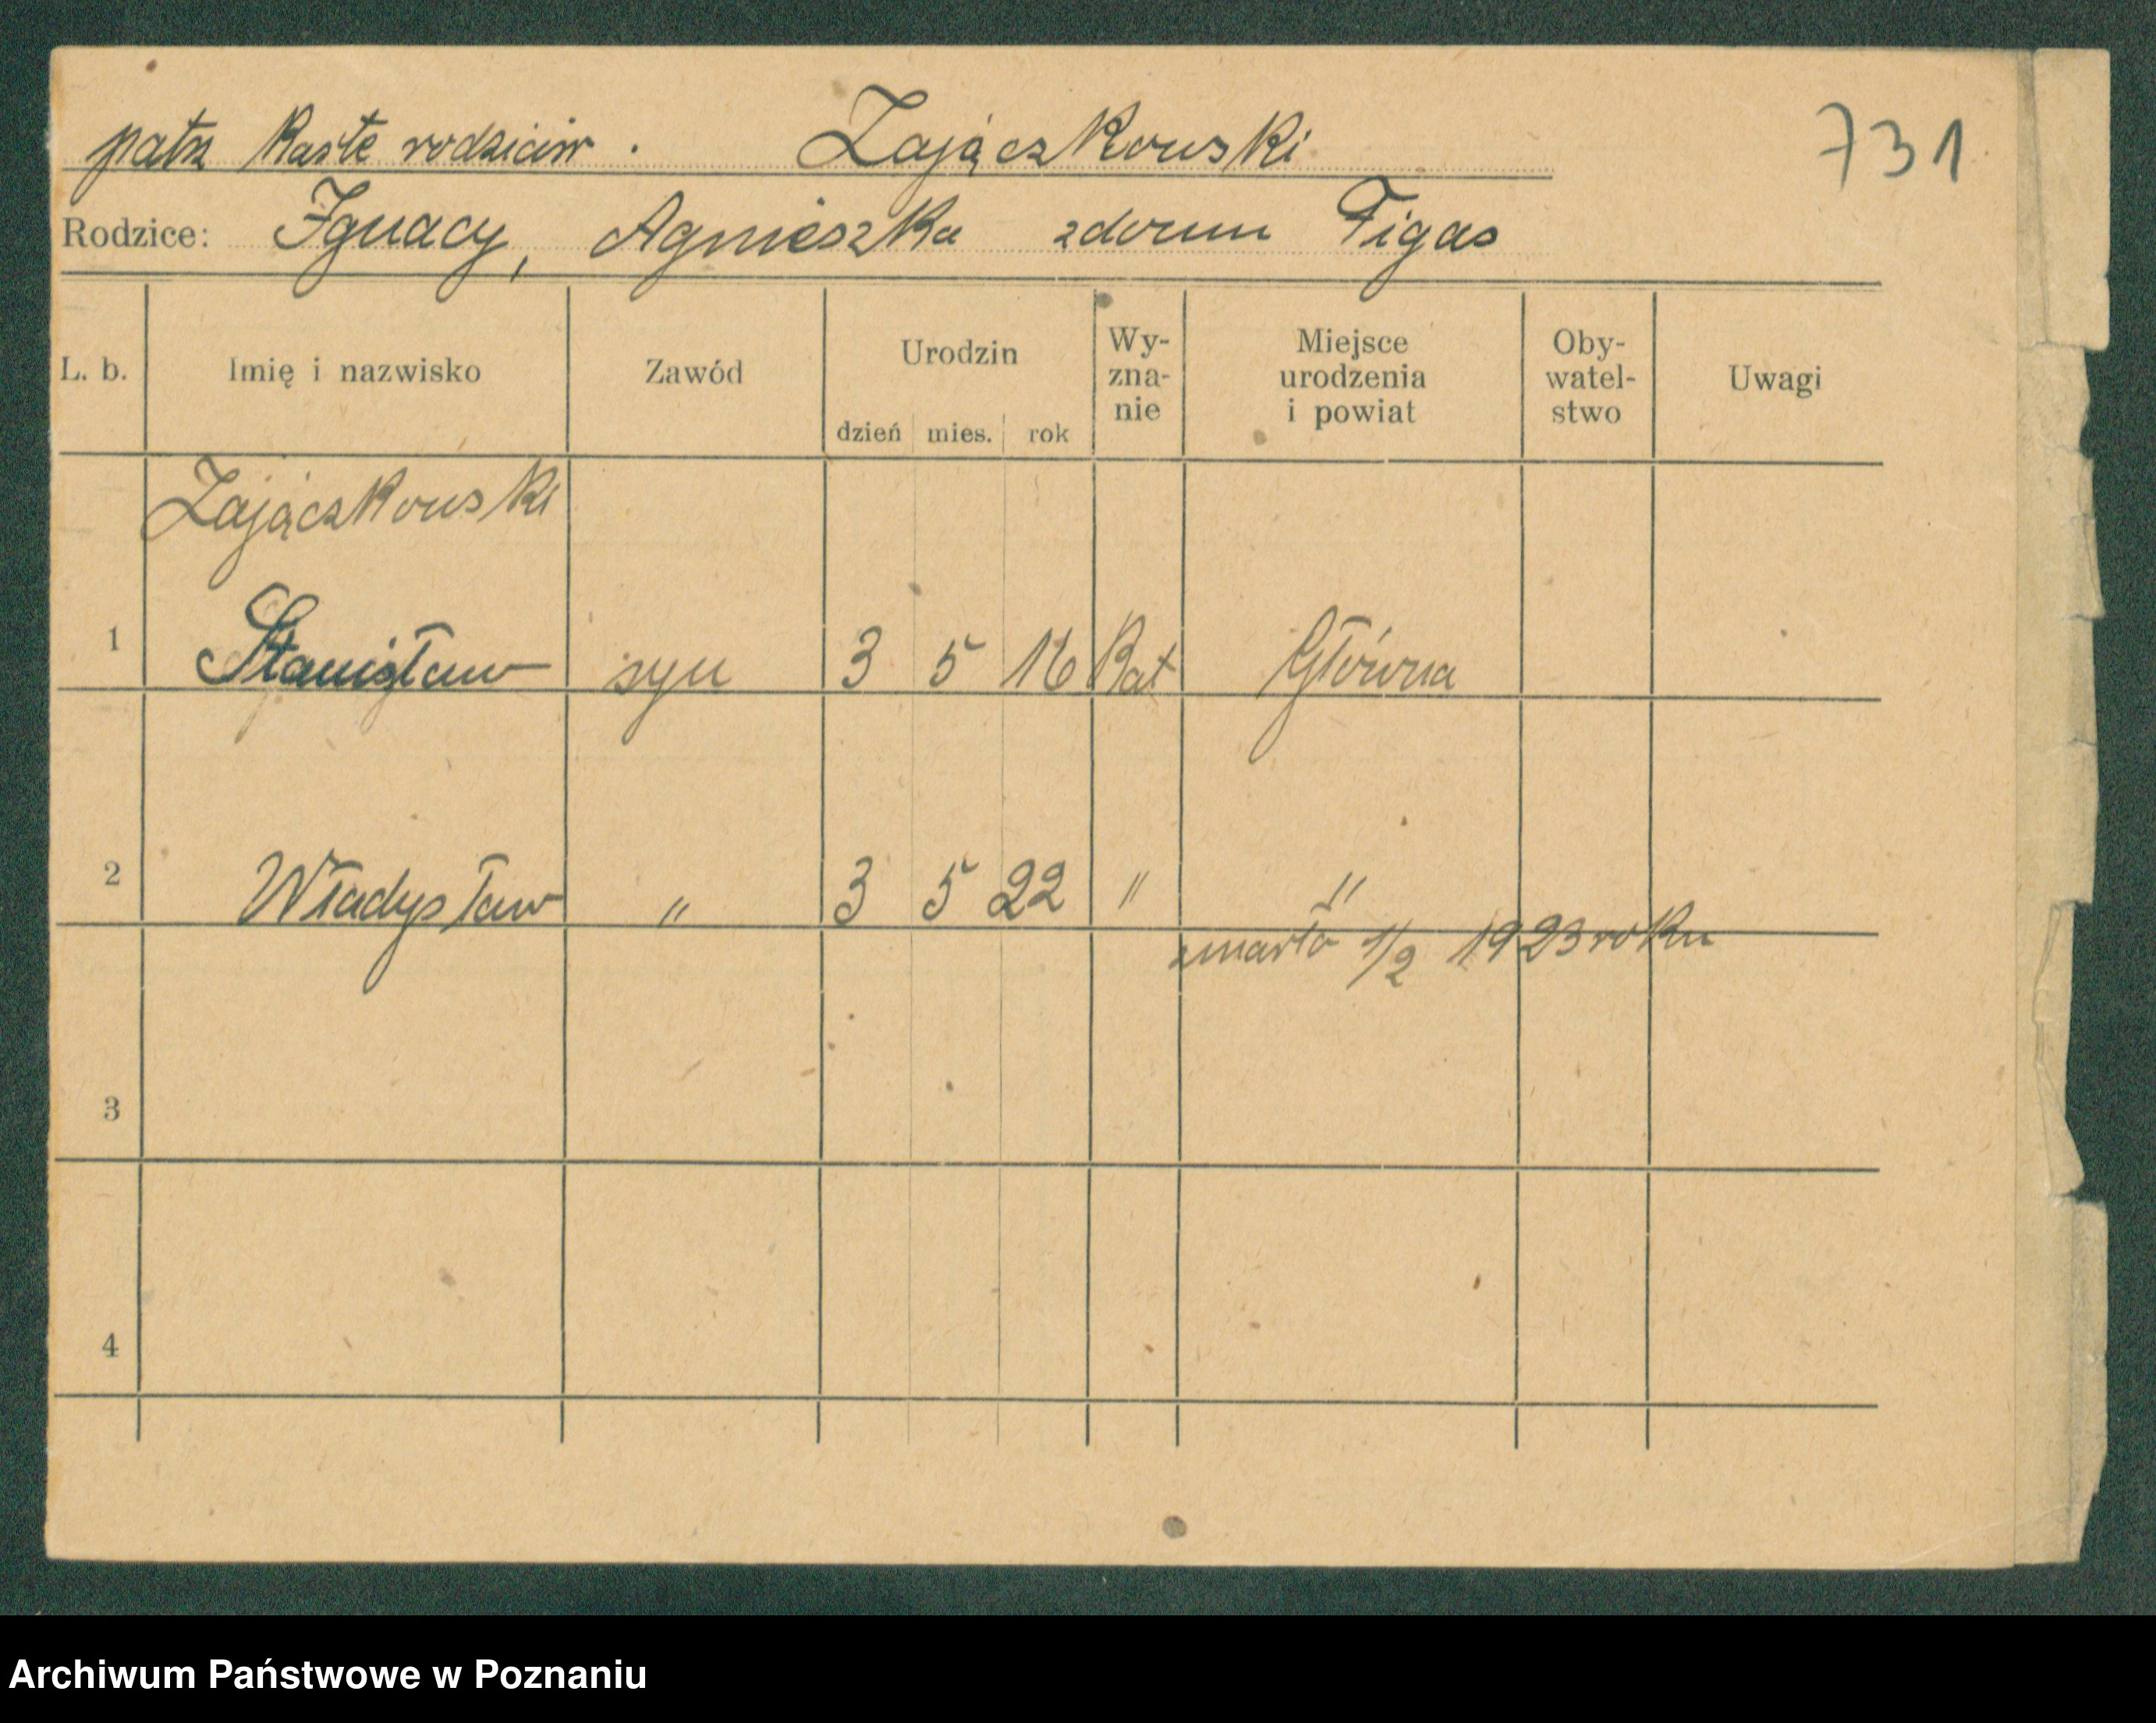 patrz Kartę rodziców . Zajączkowski 731
Rodzice: Ignacy, Agnieszka zdomu Figas
L. b. Imię i nazwisko Zawód Urodzin dzień mies. rok Wy-zna-nie Miejsce urodzenia i powiat Oby-watel-stwo Uwagi
Zajączkowski
1 Stanisław syn 3 5 16 Kat Główna
2 Władysław " 3 5 22 " "
zmarło 1/2 1923 roku
3
4
Archiwum Państwowe w Poznaniu